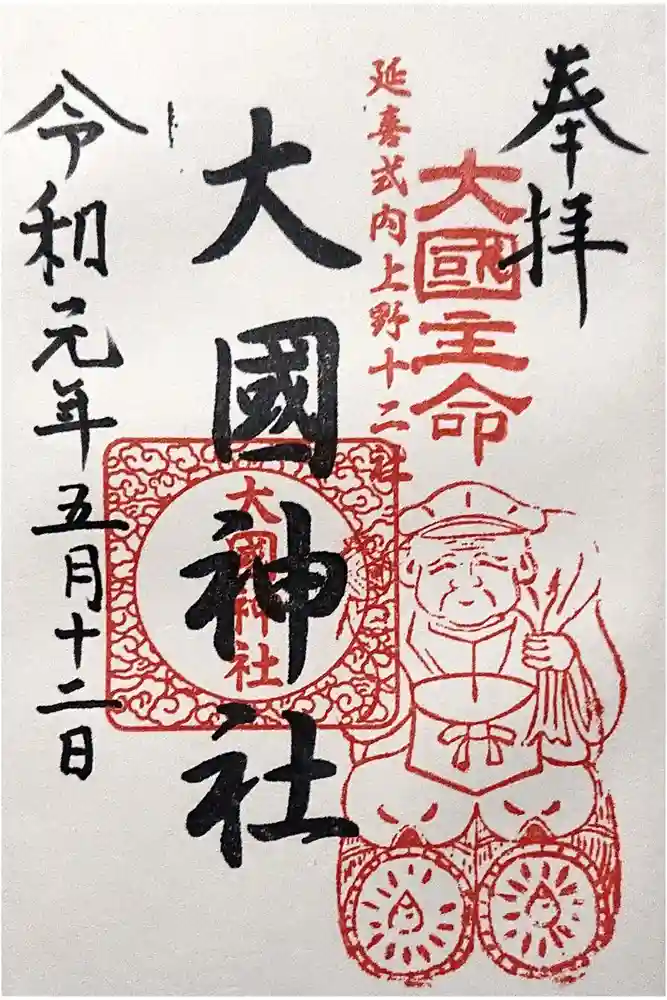 奉拝
大國主命
延喜式内上野十二社
大國神社
大國神社
令和元年五月十二日